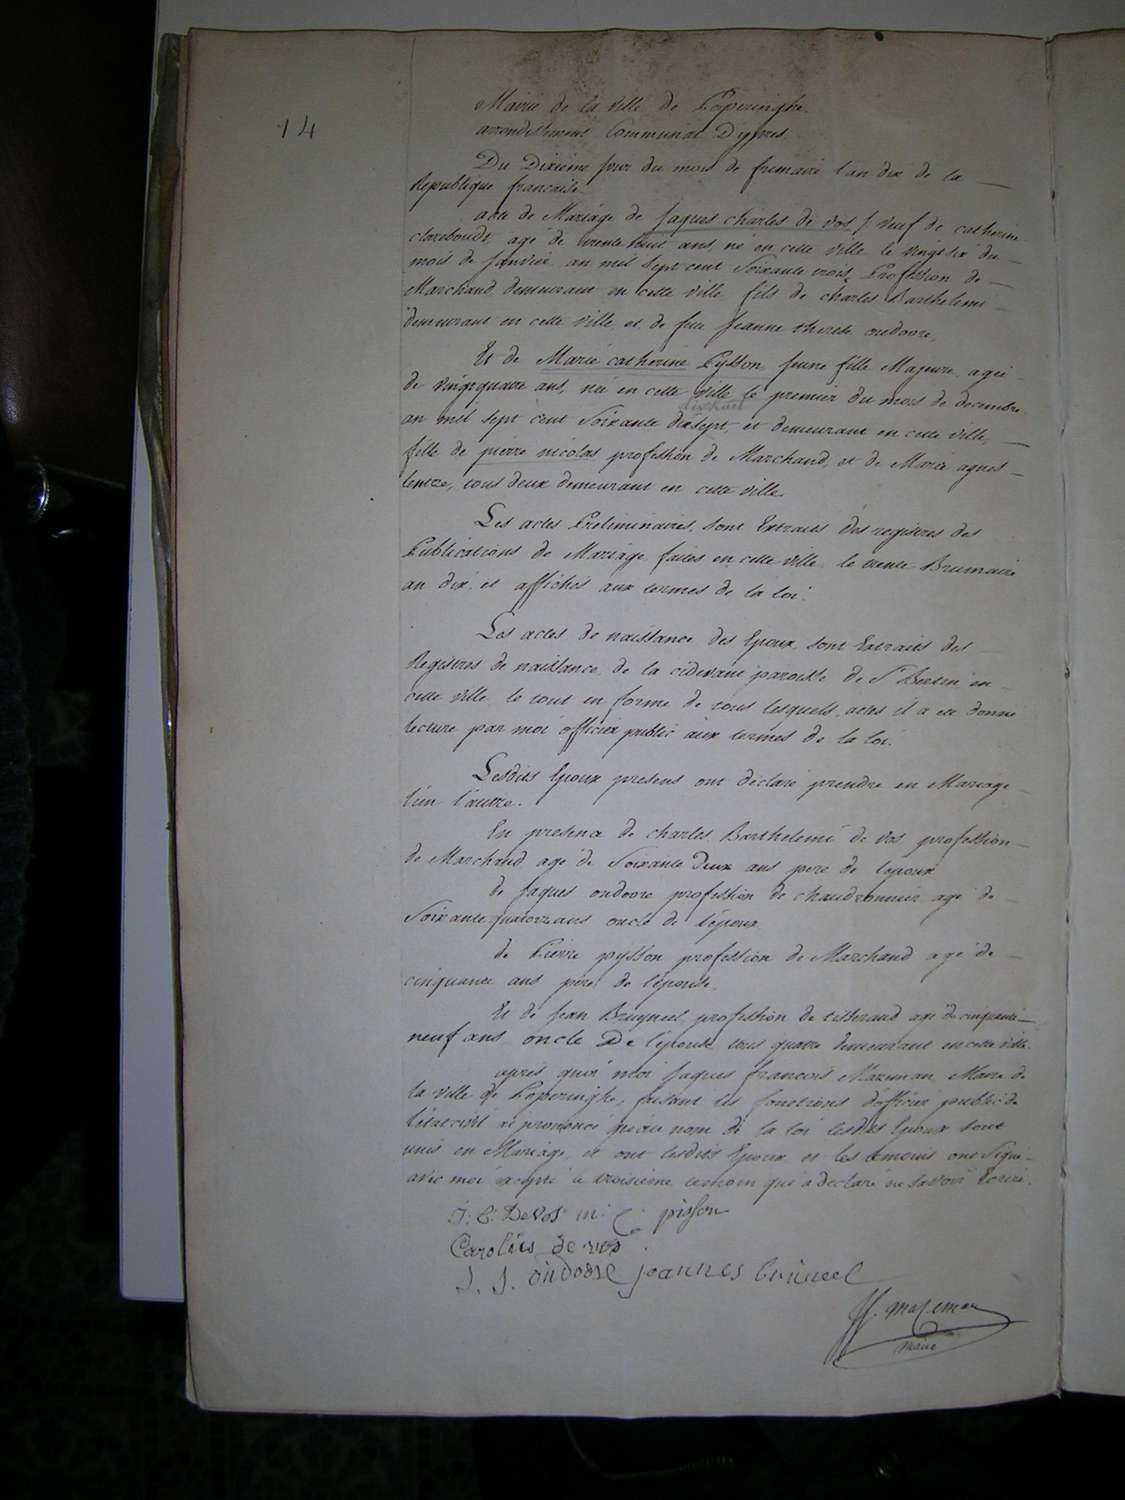 14
Mairie de la ville de Poperinghe
arrondissement Communal D'ypres
Du Dixieme jour du mois de frimaire l'an dix de la
Republique francaise
acte de Mariage de jaques charles de vos / veuf de catherine
clarebouds, agé de trente huit ans, né en cette ville le vingt six du
mois de janvier an mil sept cent soixante trois, Profession de
Marchand demeurant en cette ville fils de charles Barthelemi
demeurant en cette ville, et de feu jeanne therese oudoore,
Et de Marie catherine Pysson, jeune fille Majeure, agée
de vingt quatre ans, née en cette ville le premier du mois de decembre
an mil sept cent soixante dix sept, et demeurant en cette ville,
fille de pierre nicolas profession de Marchand, et de Marie agnes
tous deux demeurant en cette ville.
Les actes Preliminaires, sont Extraits des registres des
Publications de Mariage faites en cette ville le trente Brumaire
an dix, et affichés aux termes de la loi.
Les actes de naissance des Epoux, sont Extraits des
Registres de naissance de la cidevant paroisse de St Bertin en
cette ville, le tout en forme de tous lesquels actes il a été donné
lecture par moi officier public aux termes de la loi.
Lesdits Epoux presens ont declaré prendre en Mariage
l'un l'autre.
En presence de charles Barthelemi de vos profession
de Marchand agé de soixante Deux ans pere de l'epoux
de jaques oudoore profession de chaudronnier agé de
soixante quatorze ans oncle de l'epoux
de Pierre pysson profession de Marchand agé de
cinquante ans pere de l'epouse.
Et de jean Bruyneel profession de tisserand agé de cinquante
neuf ans oncle De l'epouse tous quatre demeurant en cette ville.
apres quoi moi jaques francois Mazeman Maire de
la ville de Poperinghe, faisant les fonctions d'officier public de
l'etat civil ai prononcé qu'au nom de la loi lesdits Epoux sont
unis en Mariage, et ont lesdits Epoux et les temoins ont signé
avec moi excepté le troisieme temoin qui a declaré ne savoir Ecrire.
J: C: De Vos m: C: pisson
Carolus de vos
J. J. oudoore joannes bruneel
J f. mazeman
maire